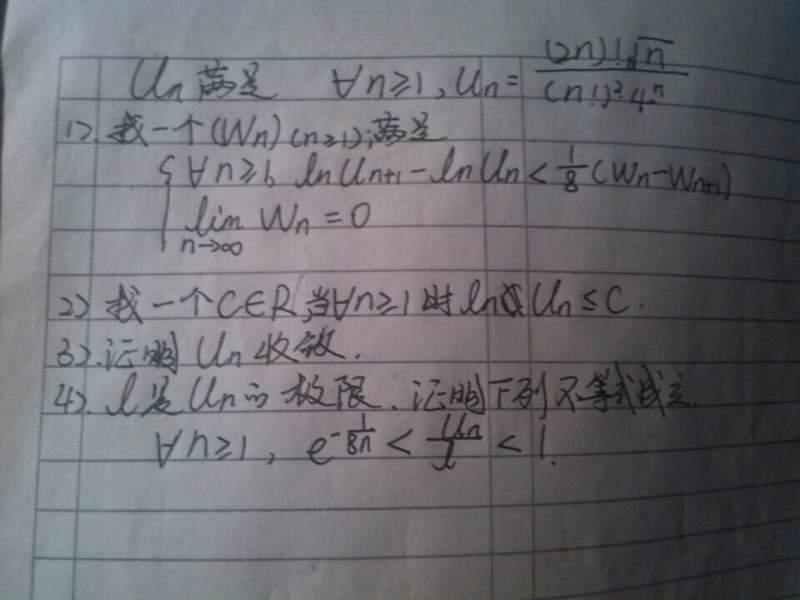 Un满足 ∀n≥1, Un= (2n)!√n / (n!)²·4ⁿ
1). 找一个(Wn)(n≥1),满足
{ ∀n≥1, lnUn+1 - lnUn < 1/8 (Wn-Wn+1)
lim n→∞ Wn = 0
2) 找一个C∈R,当∀n≥1时 ln Un ≤ C.
3). 证明 Un 收敛.
4). l是Un的极限. 证明下列不等式成立.
∀n≥1, e^-1/8n < Un/l < 1.